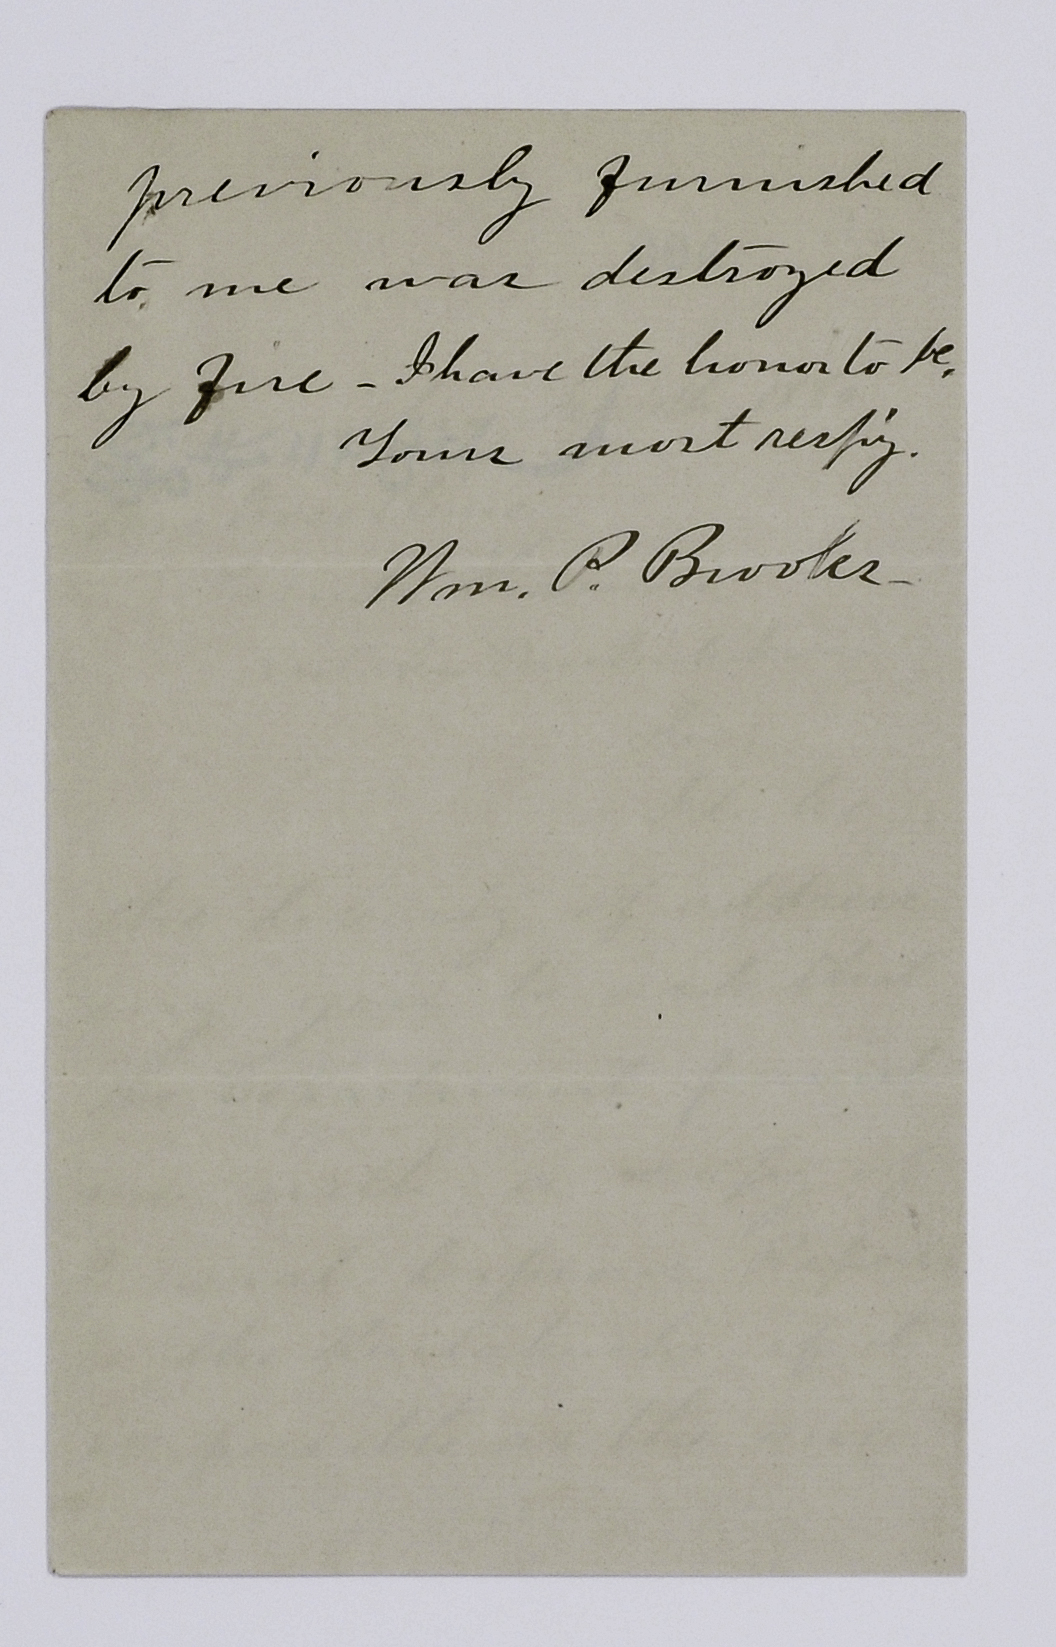 previously furnished
to me was destroyed
by fire - I have the honor to be,
Yours most resp'y.
Wm. P. Brooks